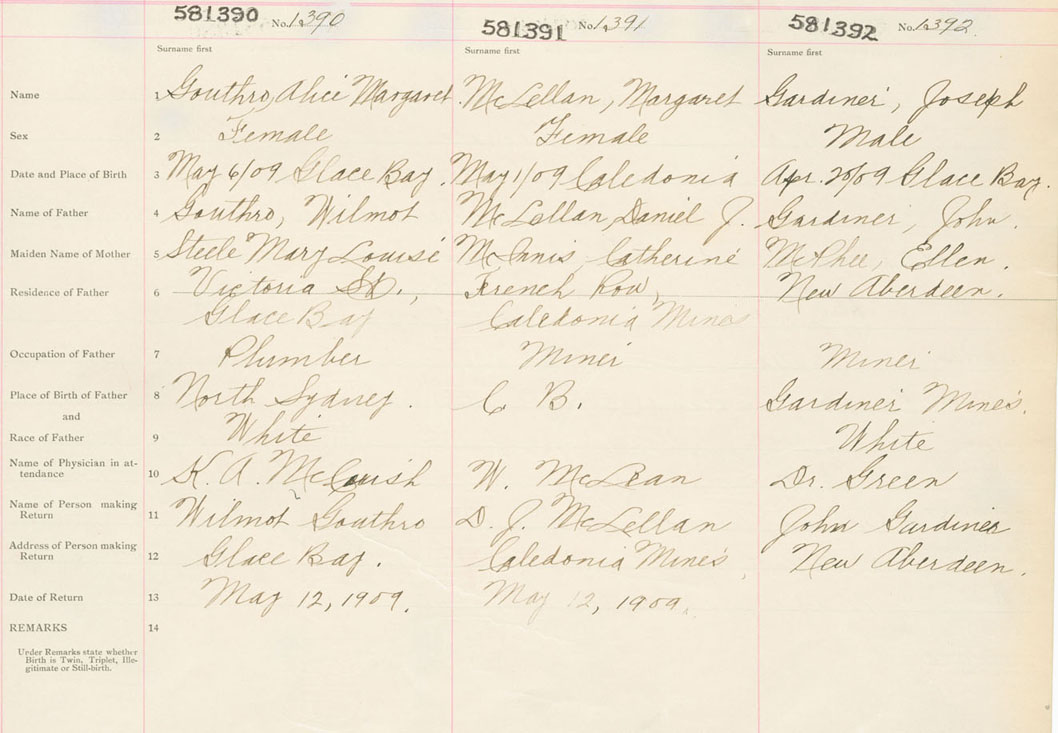 581390 No. 1390 581391 No. 1391 581392 No. 1392
Surname first Surname first Surname first
Name 1 Gouthro, Alice Margaret McLellan, Margaret Gardiner, Joseph
Sex 2 Female Female Male
Date and Place of Birth 3 May 6/09 Glace Bay. May 1/09 Caledonia Apr. 20/09 Glace Bay.
Name of Father 4 Gouthro, Wilmot McLellan, Daniel J. Gardiner, John.
Maiden Name of Mother 5 Steele Mary Louise McInnis, Catherine McPhee, Ellen.
Residence of Father 6 Victoria St., French Row, New Aberdeen.
Glace Bay Caledonia Mines
Occupation of Father 7 Plumber Miner Miner
Place of Birth of Father 8 North Sydney. C B. Gardiner Mines.
and
Race of Father 9 White White
Name of Physician in at-
tendance 10 K. A. McCuish W. McLean Dr. Green
Name of Person making
Return 11 Wilmot Gouthro D. J. McLellan John Gardiner
Address of Person making
Return 12 Glace Bay. Caledonia Mines, New Aberdeen.
Date of Return 13 May 12, 1909. May 12, 1909.
REMARKS 14
Under Remarks state whether
Birth is Twin, Triplet, Ille-
gitimate or Still-birth.